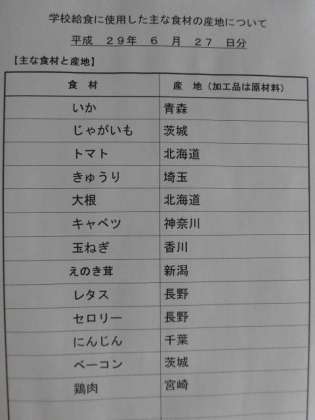 学校給食に使用した主な食材の産地について
平成 29年 6 月 27 日分
【主な食材と産地】
食 材 産 地（加工品は原材料）
いか 青森
じゃがいも 茨城
トマト 北海道
きゅうり 埼玉
大根 北海道
キャベツ 神奈川
玉ねぎ 香川
えのき茸 新潟
レタス 長野
セロリー 長野
にんじん 千葉
ベーコン 茨城
鶏肉 宮崎